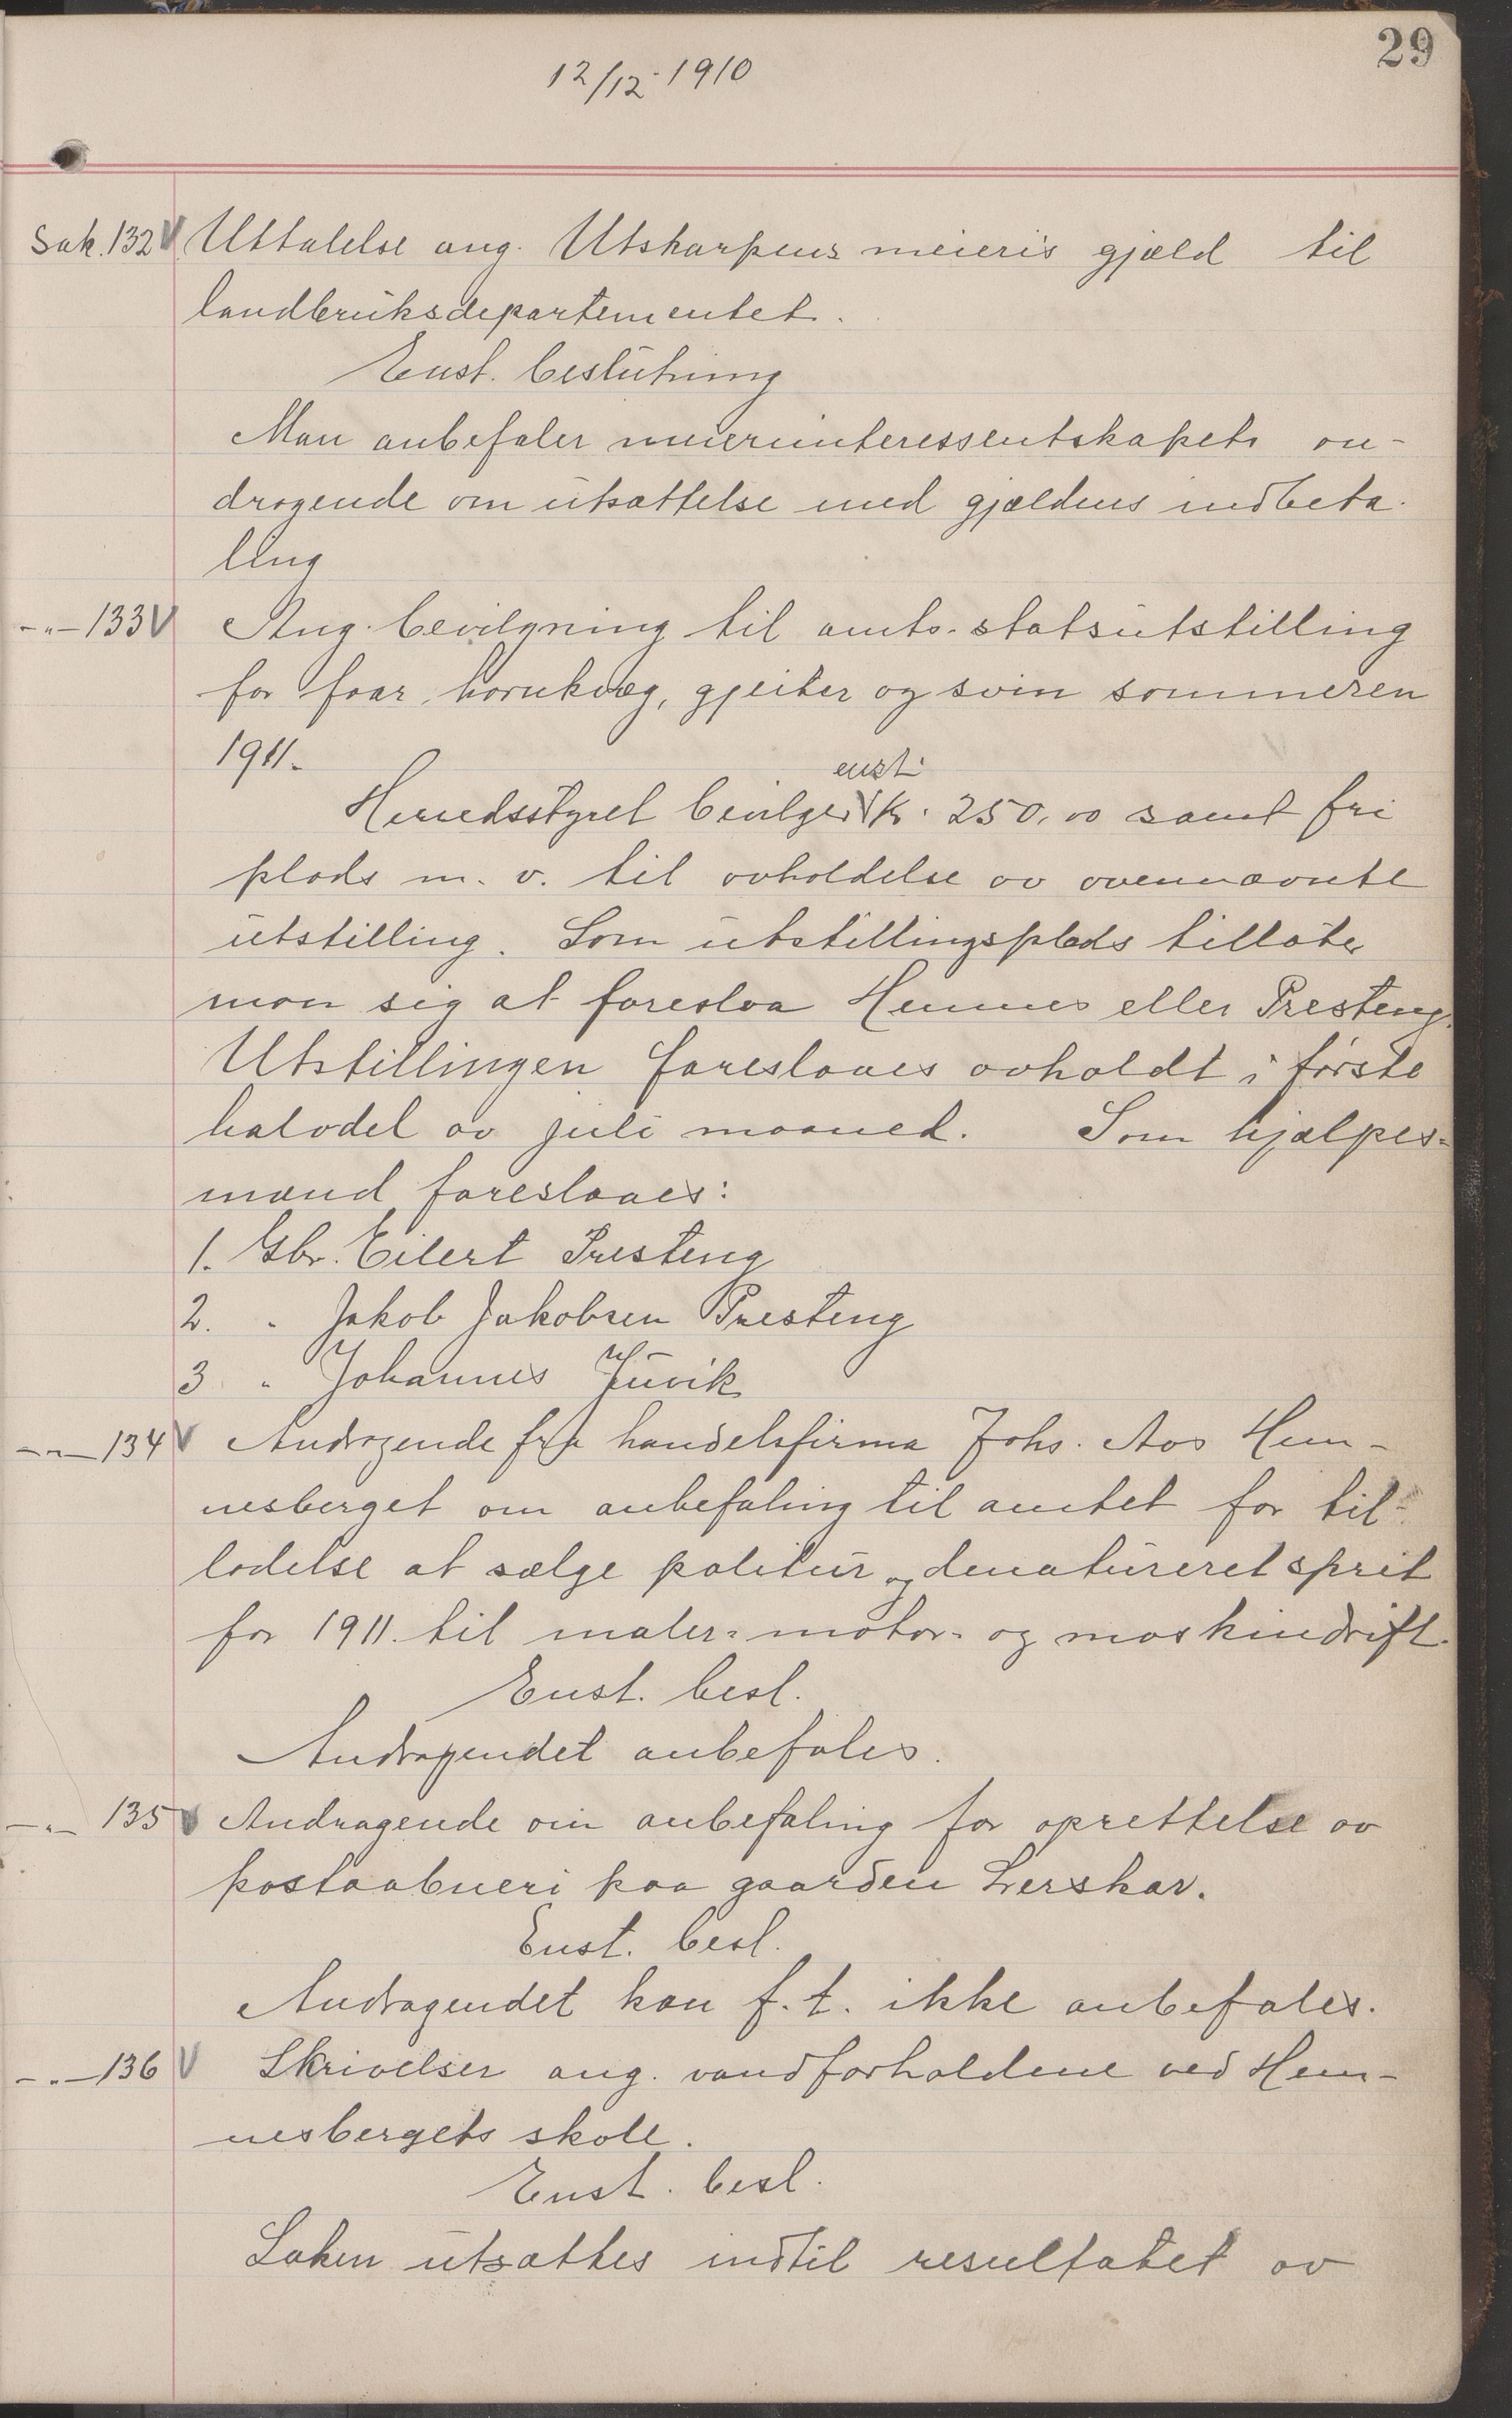 29
12/12 1910
Sak. 132 V Uttalelse ang. Utskarpens meieris gjæld til
landbruksdepartementet.
Enst. beslutning
Man anbefaler meieriinteressentskapets an-
dragende om utsættelse med gjældens indbeta-
ling
-"- 133 V Ang. bevilgning til amts-statsutstilling
for faar, hornkvæg, gjeiter og svin sommeren
1911.
enst.
Herredsstyret bevilger V kr. 250,00 samt fri
plads m. v. til avholdelse av ovennævnte
utstilling. Som utstillingsplads tillater
man sig at foreslaa Hemnes eller Presteng.
Utstillingen foreslaaes avholdt i første
halvdel av juli maaned. Som hjælpes-
mænd foreslaaes:
1. Gbr. Eilert Presteng
2. " Jakob Jakobsen Presteng
3 " Johannes Juvik
-"- 134 V Andragende fra handelsfirma Johs. Aas Hem-
nesberget om anbefaling til amtet for til-
ladelse at sælge politur og denatureret sprit
for 1911. til maler- motor- og maskindrift.
Enst. besl.
Andragendet anbefales.
-"- 135 V Andragende om anbefaling for oprettelse av
postaabneri paa gaarden Lerskar.
Enst. besl.
Andragendet kan f. t. ikke anbefales.
-"- 136 V Skrivelser ang. vandforholdene ved Hem-
nesbergets skole.
Enst. besl.
Saken utsættes indtil resultatet av